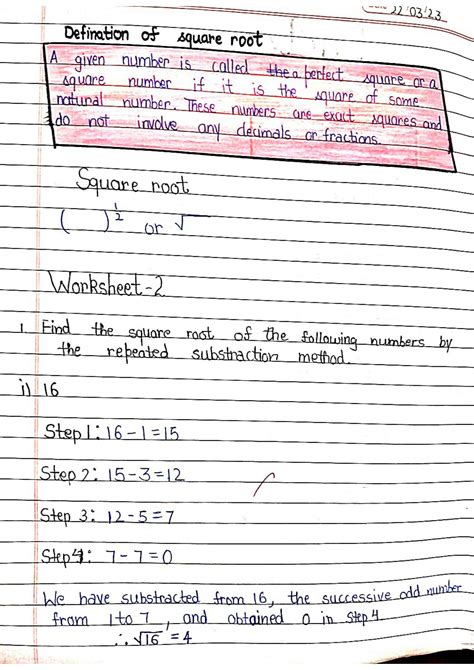 22/03/23
Defination of square root
A given number is called the a perfect square or a
square number if it is the square of some
natural number. These numbers are exact squares and
do not involve any decimals or fractions.
Square root
( )^1/2 or √
Worksheet-2
1. Find the square root of the following numbers by
the repeated substraction method.
i) 16
Step 1: 16-1=15
Step 2: 15-3=12
Step 3: 12-5=7
Step 4: 7-7=0
We have substracted from 16, the successive odd number
from 1 to 7, and obtained 0 in step 4.
∴ √16 = 4